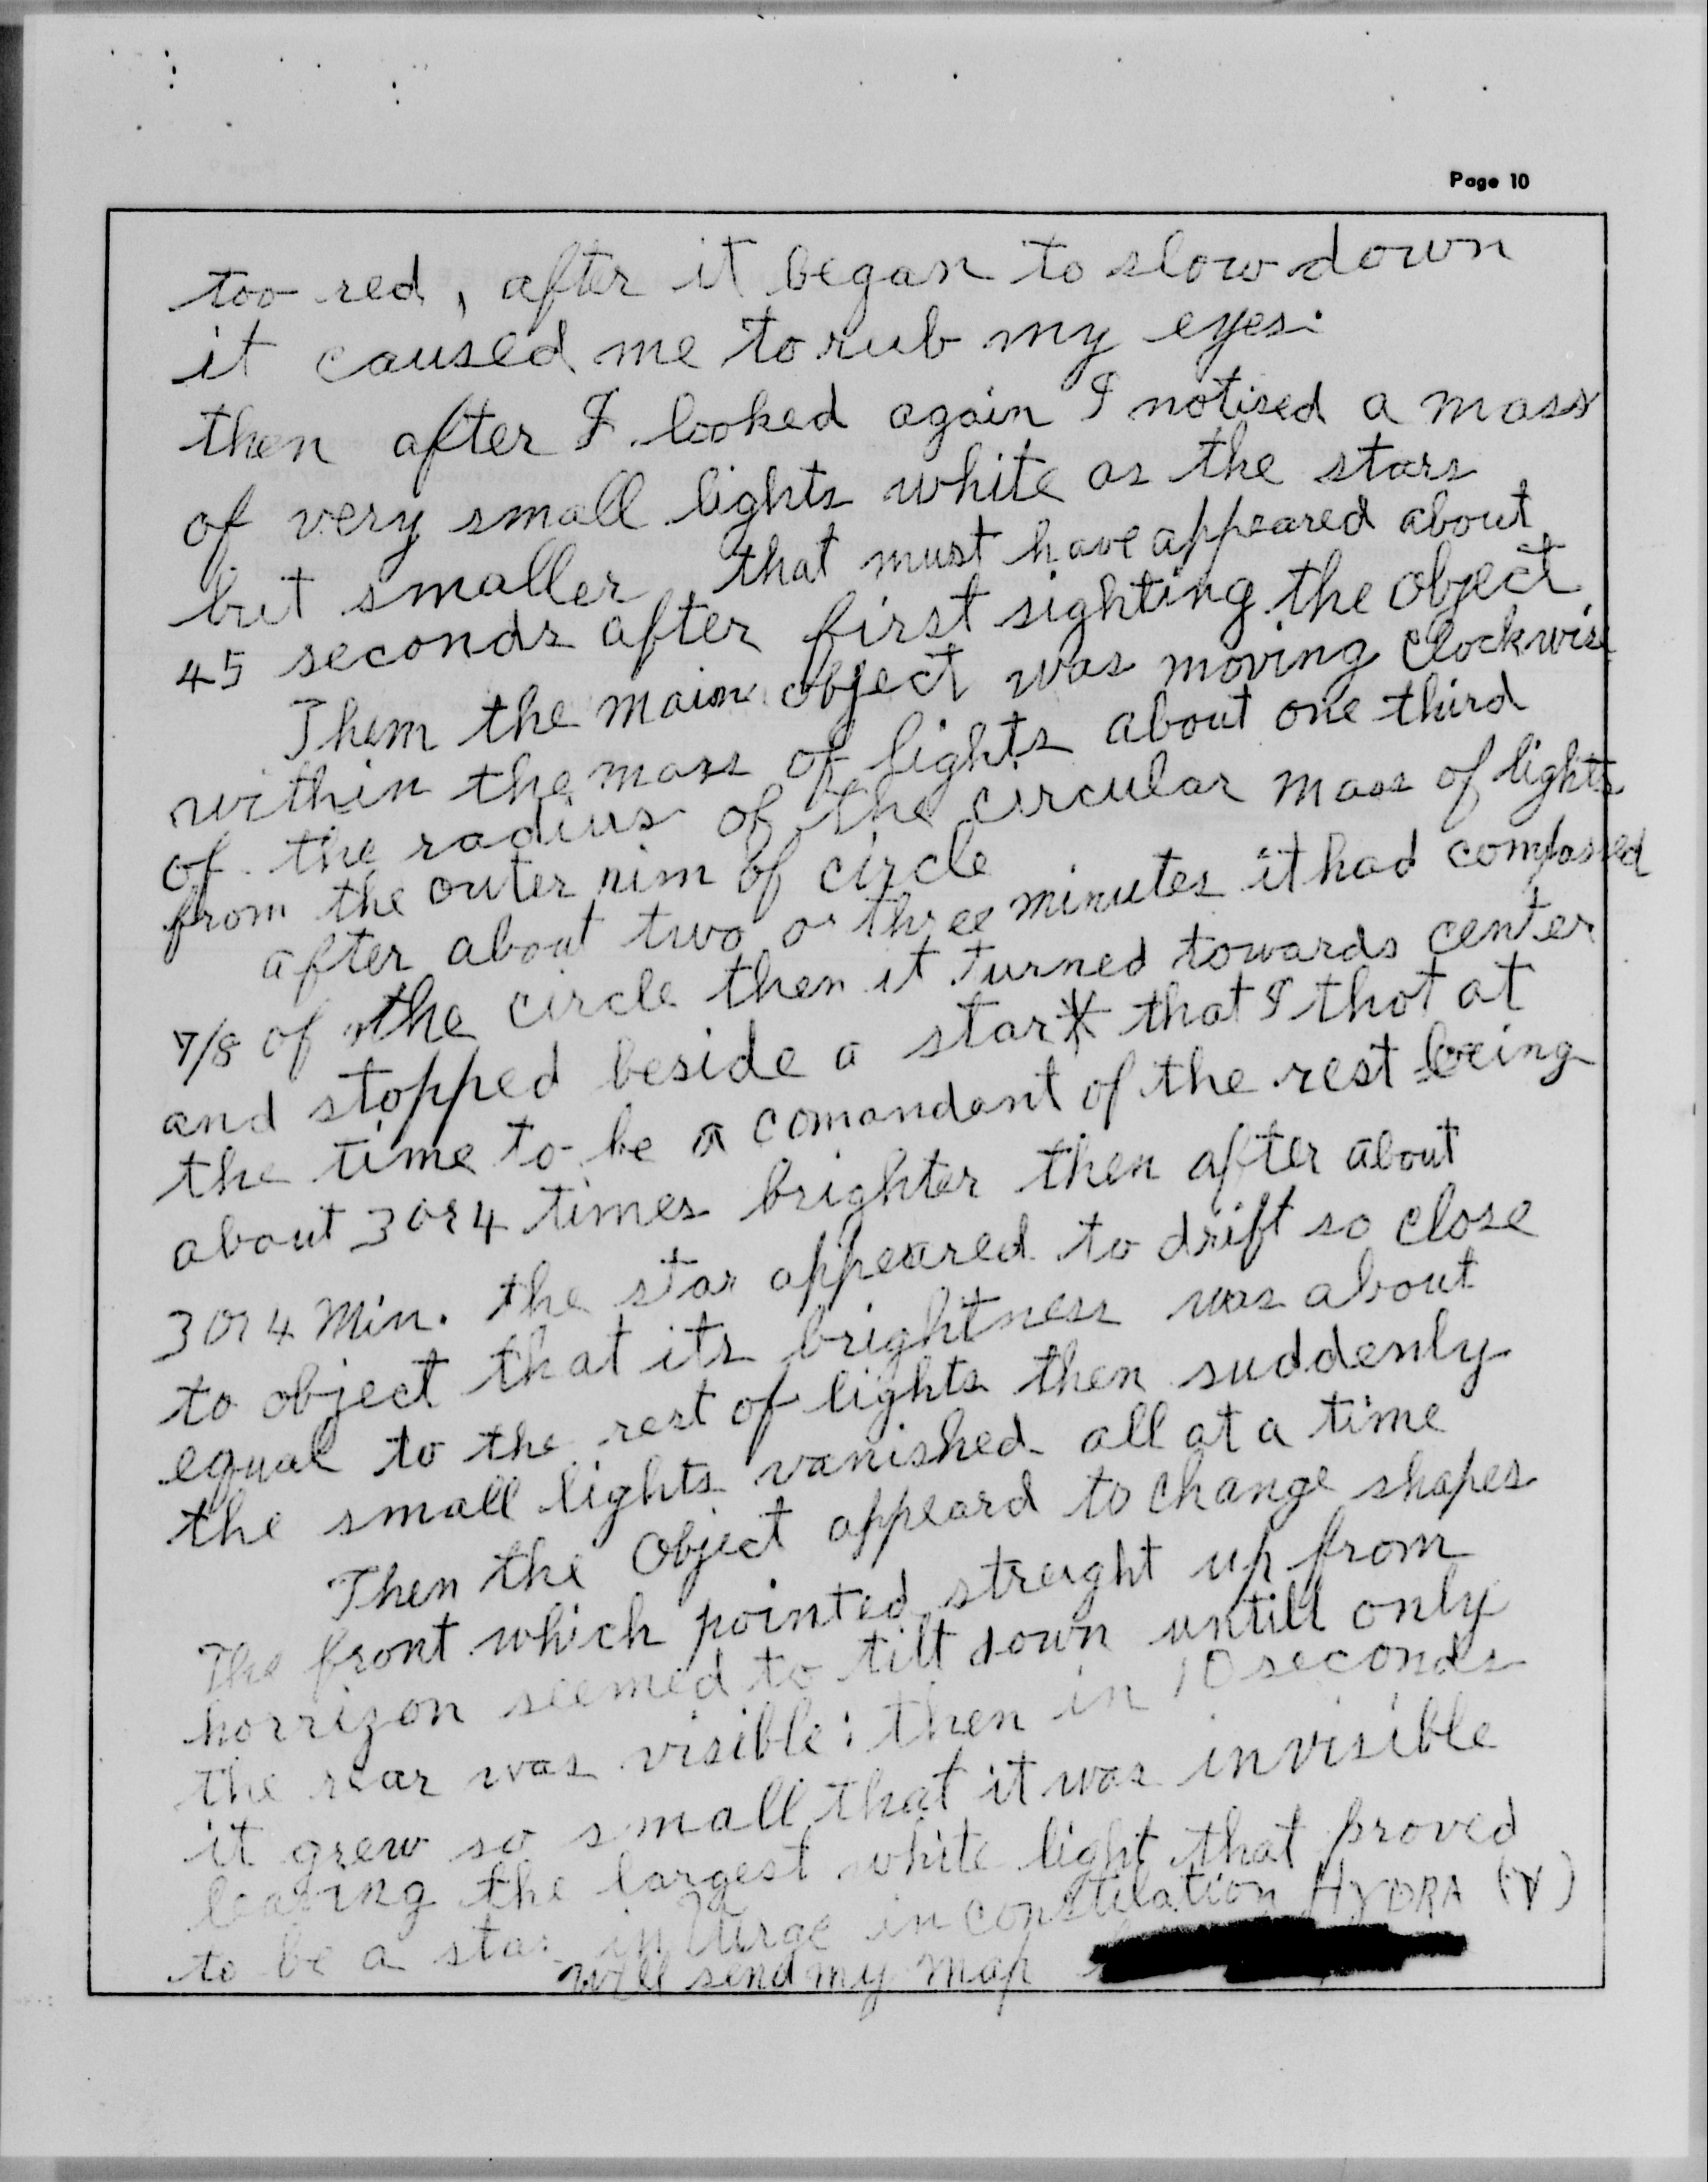 Page 10
too red, after it began to slow down
it caused me to rub my eyes.
then after I looked again I notised a mass
of very small lights white as the stars
but smaller that must have appeared about
45 seconds after first sighting the object
Them the main object was moving clockwise
within the mass of lights about one third
of the radius of the circular mass of lights
from the outer rim of circle
after about two or three minutes it had compassed
7/8 of the circle then it turned towards center
and stopped beside a star* that I thot at
the time to be a comandant of the rest being
about 3 or 4 times brighter then after about
3 or 4 Min. the star appeared to drift so close
to object that its brightness was about
equal to the rest of lights then suddenly
the small lights vanished all at a time
Then the Object appeard to change shapes
The front which pointed streight up from
horrizon seemed to tilt down untill only
the rear was visible: then in 10 seconds
it grew so small that it was invisible
leaving the largest white light that proved
to be a star in in constilation HYDRA (γ)
will send my map